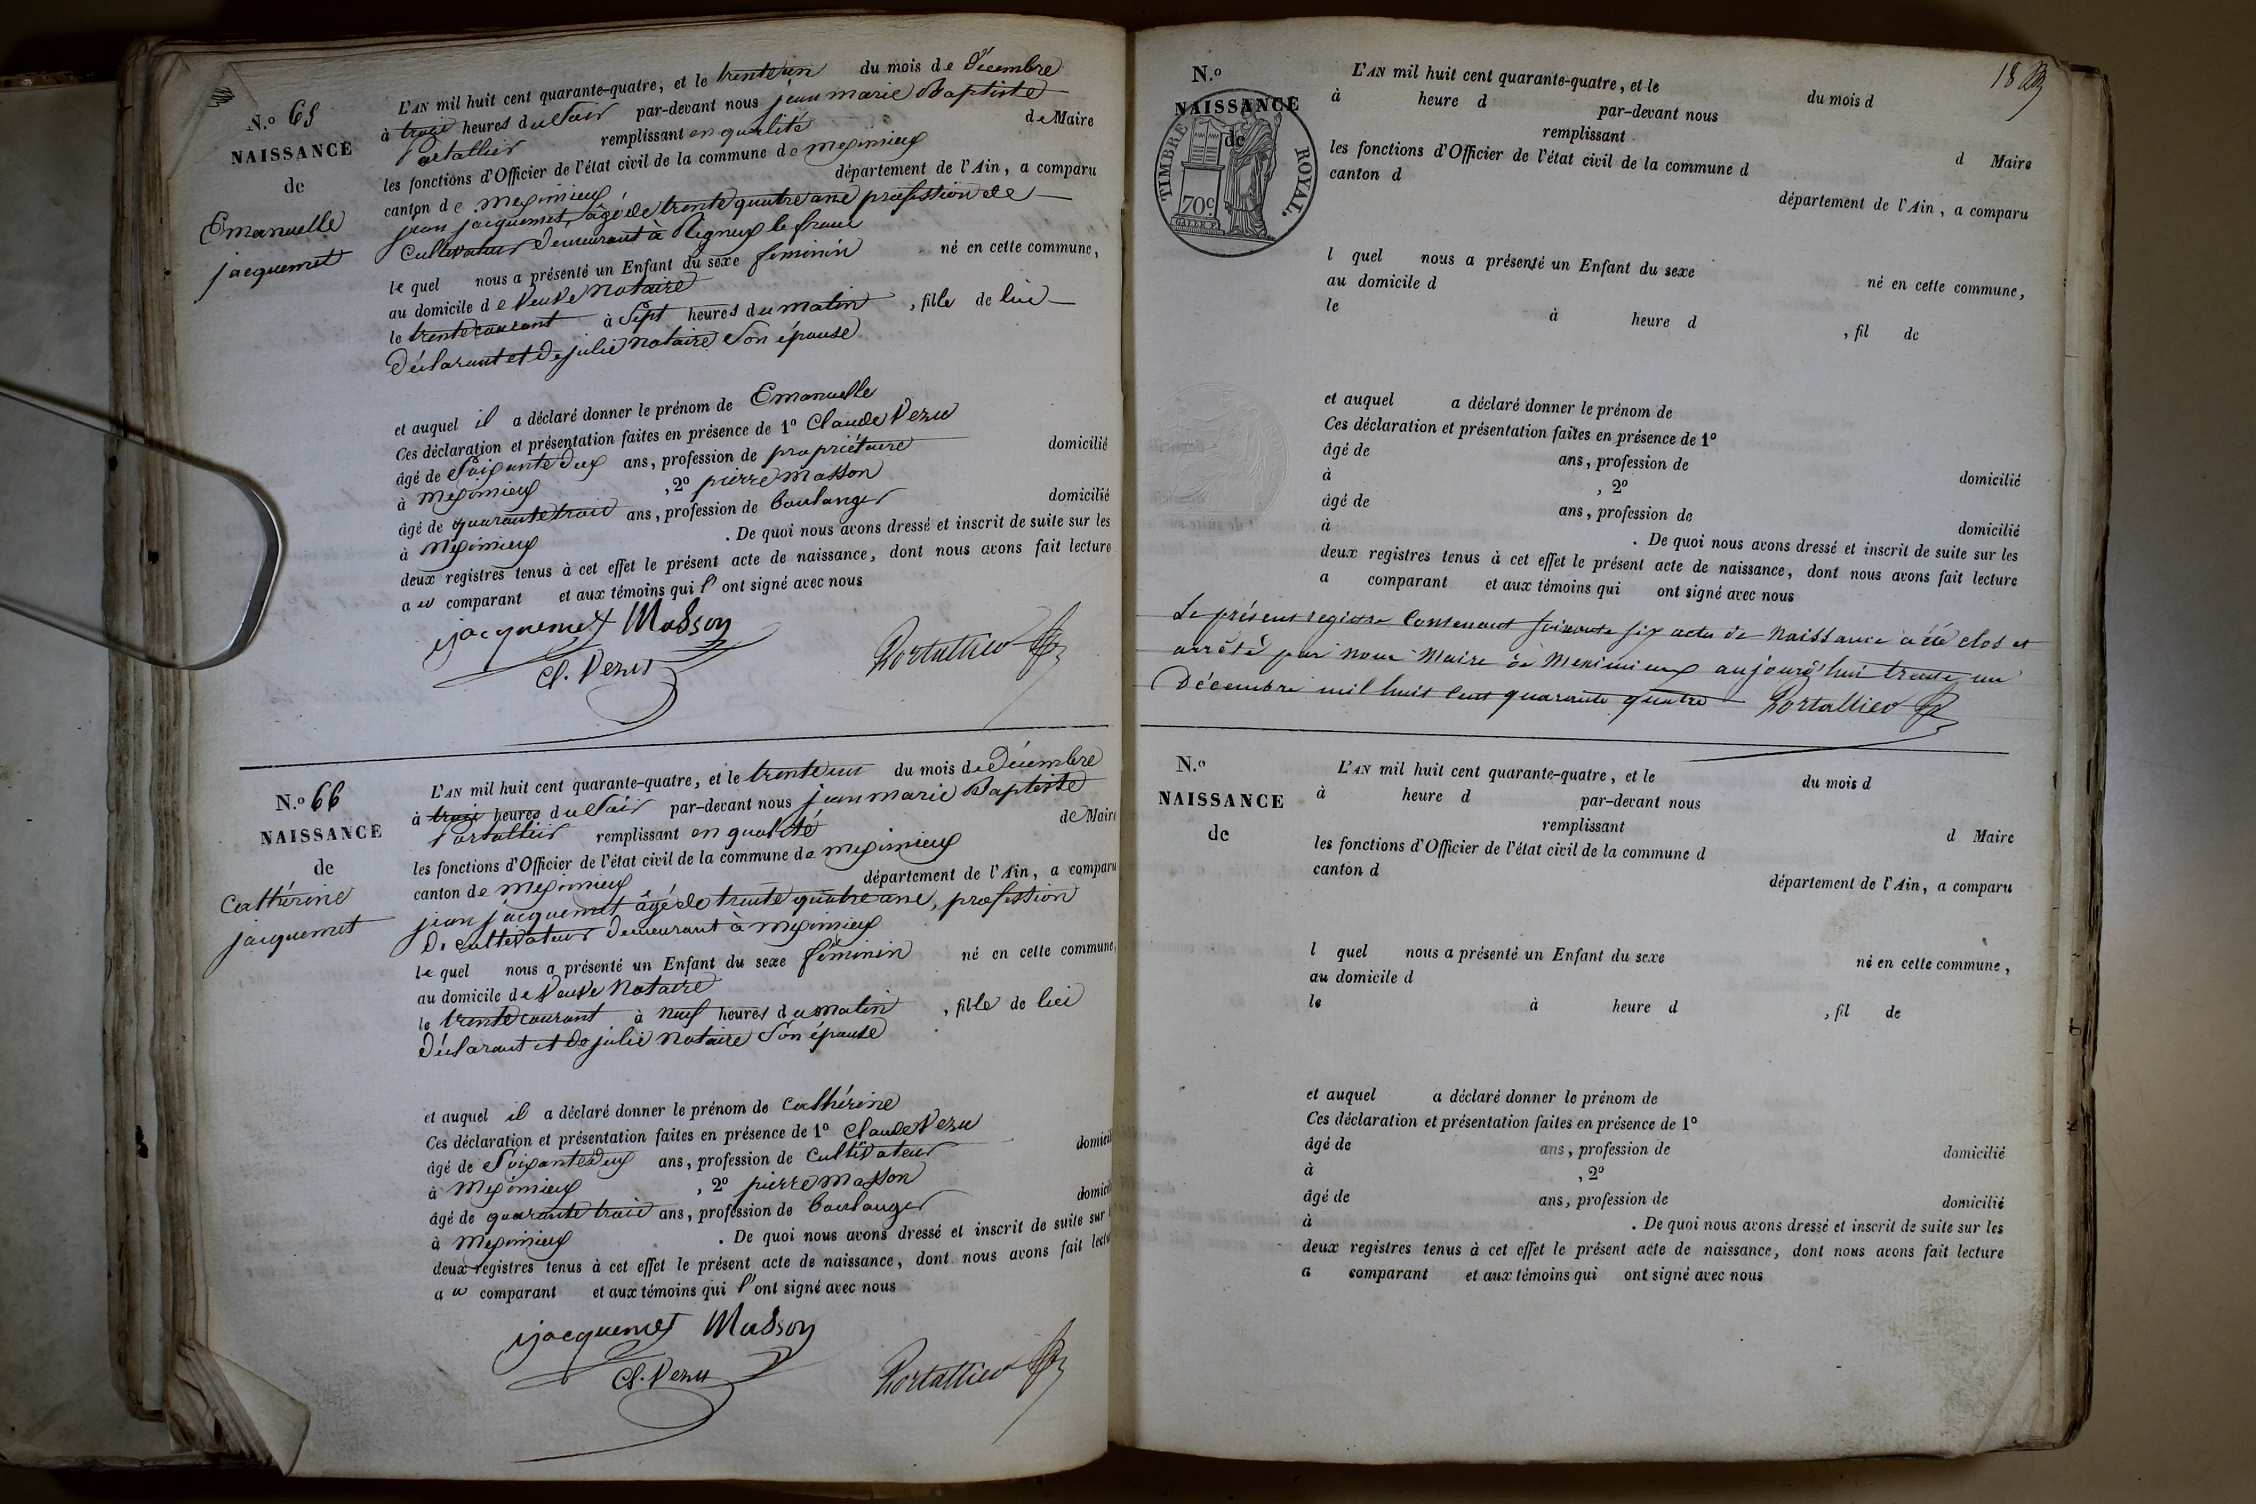 N.º 65
NAISSANCE
de
Emanuelle
jacquemet
L'AN mil huit cent quarante-quatre, et le trente un du mois de Décembre
à trois heures du Soir par-devant nous jean marie Baptiste
Portallier remplissant en qualité de Maire
les fonctions d'Officier de l'état civil de la commune de meximieux
canton de meximieux département de l'Ain, a comparu
jean jacquemet, âgé de trente quatre ans profession de
Cultivateur demeurant à Rigneux le franc
lequel nous a présenté un Enfant du sexe feminin né en cette commune,
au domicile de Veuve Notaire
le trente courant à Sept heures du matin, fille de lui
Déclarant et de julie Notaire Son épouse
et auquel il a déclaré donner le prénom de Emanuelle
Ces déclaration et présentation faites en présence de 1º Claude Venu
âgé de Soixante deux ans, profession de propriétaire domicilié
à meximieux, 2º pierre Masson
âgé de quarante trois ans, profession de boulanger domicilié
à Meximieux. De quoi nous avons dressé et inscrit de suite sur les
deux registres tenus à cet effet le présent acte de naissance, dont nous avons fait lecture
au comparant et aux témoins qui l'ont signé avec nous
jacquemet Masson
Cl. Venu Portallier
N.º 66
NAISSANCE
de
Cathérine
jacquemet
L'AN mil huit cent quarante-quatre, et le trente un du mois de Décembre
à trois heures du Soir par-devant nous jean marie Baptiste
Portallier remplissant en qualité de Maire
les fonctions d'Officier de l'état civil de la commune de meximieux
canton de meximieux département de l'Ain, a comparu
jean jacquemet âgé de trente quatre ans, profession
De cultivateur demeurant à meximieux
lequel nous a présenté un Enfant du sexe féminin né en cette commune,
au domicile de Veuve Notaire
le trente courant à neuf heures du matin, fille de lui
Déclarant et de julie Notaire Son épouse
et auquel il a déclaré donner le prénom de Cathérine
Ces déclaration et présentation faites en présence de 1º Claude Venu
âgé de Soixante deux ans, profession de Cultivateur domicil
à Meximieux, 2º pierre Masson
âgé de quarante trois ans, profession de boulanger domici
à Meximieux. De quoi nous avons dressé et inscrit de suite sur
deux registres tenus à cet effet le présent acte de naissance, dont nous avons fait lectu
au comparant et aux témoins qui l'ont signé avec nous
jacquemet Masson
Cl. Venu Portallier
18
N.º
NAISSANCE
de
TIMBRE ROYAL.
70c
L'AN mil huit cent quarante-quatre, et le du mois d
à heure d par-devant nous
remplissant d Maire
les fonctions d'Officier de l'état civil de la commune d
canton d département de l'Ain, a comparu
l quel nous a présenté un Enfant du sexe né en cette commune,
au domicile d
le à heure d , fil de
et auquel a déclaré donner le prénom de
Ces déclaration et présentation faites en présence de 1º
âgé de ans, profession de domicilié
à , 2º
âgé de ans, profession de domicilié
à . De quoi nous avons dressé et inscrit de suite sur les
deux registres tenus à cet effet le présent acte de naissance, dont nous avons fait lecture
a comparant et aux témoins qui ont signé avec nous
Le présent registre Contenant Soixante six actes de Naissance a été clos et
arrêté par nous Maire de Meximieux aujourd'hui trente un
Décembre mil huit cent quarante quatre Portallier
N.º
NAISSANCE
de
L'AN mil huit cent quarante-quatre, et le du mois d
à heure d par-devant nous
remplissant d Maire
les fonctions d'Officier de l'état civil de la commune d
canton d département de l'Ain, a comparu
l quel nous a présenté un Enfant du sexe né en cette commune,
au domicile d
le à heure d , fil de
et auquel a déclaré donner le prénom de
Ces déclaration et présentation faites en présence de 1º
âgé de ans, profession de domicilié
à , 2º
âgé de ans, profession de domicilié
à . De quoi nous avons dressé et inscrit de suite sur les
deux registres tenus à cet effet le présent acte de naissance, dont nous avons fait lecture
a comparant et aux témoins qui ont signé avec nous